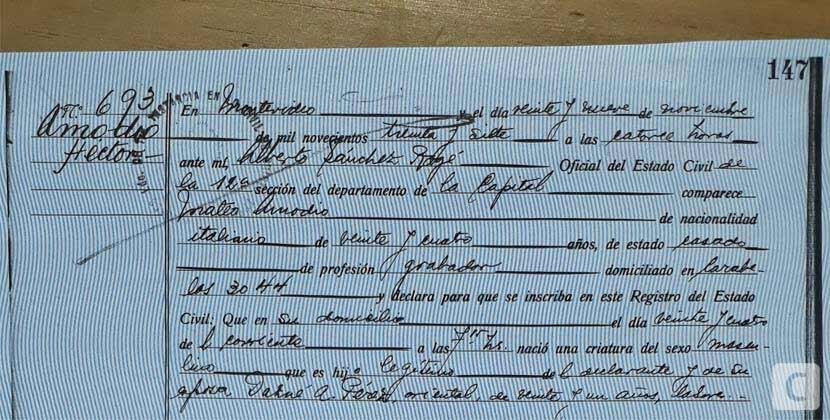 147
Nº 693
Amodio
Hector
En Montevideo y el día veinte y nueve de noviembre
de mil novecientos treinta y siete a las catorce horas
ante mí, Alberto Sanchez Rogé Oficial del Estado Civil de
la 12ª sección del departamento de la Capital comparece
Mateo Amodio de nacionalidad
italiano de veinte y cuatro años, de estado casado
de profesión grabador domiciliado en Carabe-
las 3044 y declara para que se inscriba en este Registro del Estado
Civil: Que en su domicilio el día veinte y cuatro
de l corriente a las 7 hs. nació una criatura del sexo mascu-
lino que es hijo legitimo del declarante y de su
esposa Dafné A. Pérez, oriental, de veinte y un años, labore-
C